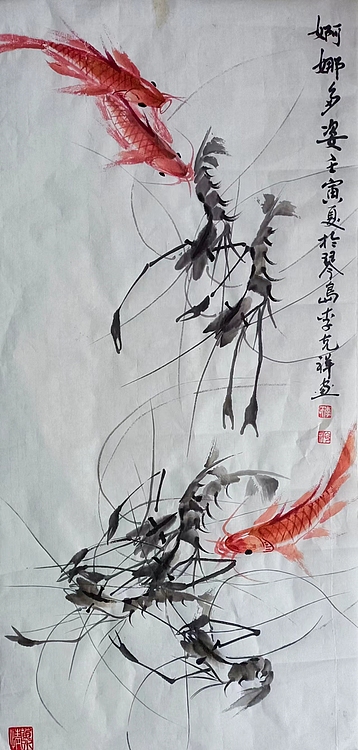 婀娜多姿壬寅夏於琴島李克祥画